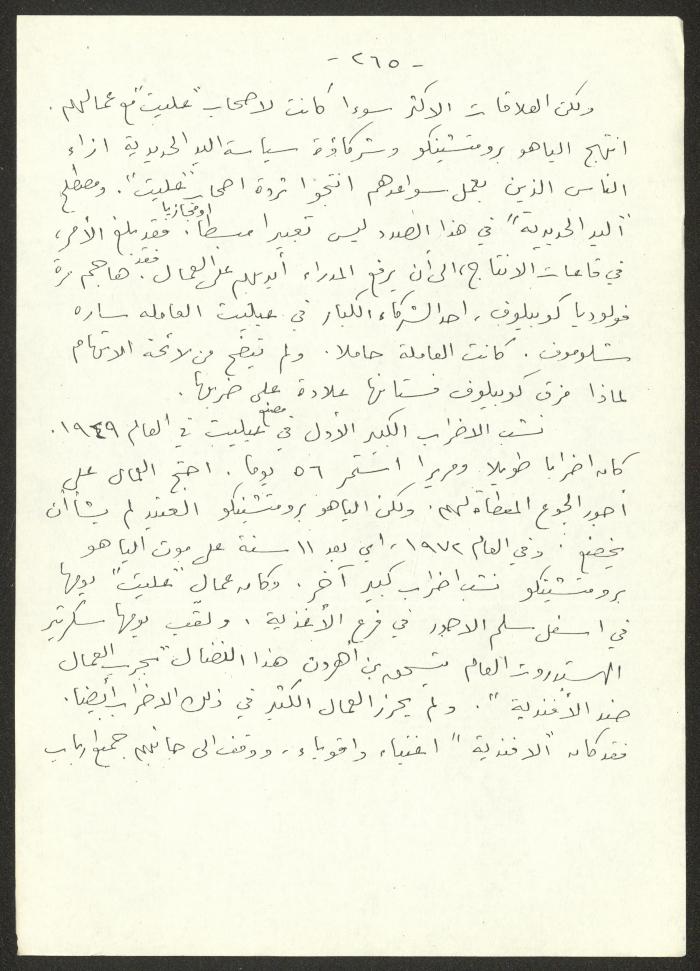 - ٢٦٥ -
ولكن العلاقات الاكثر سوءا كانت لاصحاب "عليت" مع عمالهم.
انتهج الياهو برومتشينكو وشركاؤه سياسة اليد الحديدية ازاء
الناس الذين بعمل سواعدهم انتجوا ثروة اصحاب "عليت". ومصطلح
"اليد الحديدية" في هذا الصدد ليس تعبيرا مبسطا أو مجازيا. فقد بلغ الأمر،
في قاعات الانتاج، الى أن يرفع المدراء أيديهم على العمال. فقد هاجم مرة
فولوديا كوبيلوف، احد الشركاء الكبار في عيليت العامله ساره
شلوموف. كانت العاملة حاملا. ولم تيضح من لائحة الاتهام
لماذا مزق كوبيلوف فستانها علاوة على ضربها.
نشب الاضراب الكبير الأول في مصنع عيليت في العام ١٩٤٩.
كان اضرابا طويلا ومريرا استمر ٥٦ يوما. احتج العمال على
أجور الجوع المعطاة لهم. ولكن الياهو برومتشينكو العنيد لم يشأ أن
يخضع. وفي العام ١٩٧٢، أي بعد ١١ سنة على موت الياهو
برومتشينكو نشب اضراب كبير آخر. وكان عمال "عليت" يومها
في اسفل سلم الاجور في فرع الأغذية، ولقب يومها سكرتير
الهستدروت العام يتسحق بن أهرون هذا النضال "بحرب العمال
ضد الأفندية". ولم يحرز العمال الكثير في ذلك الاضراب أيضا.
فقد كان "الافندية" اغنياء واقوياء، ووقف الى جانبهم جميع ارباب